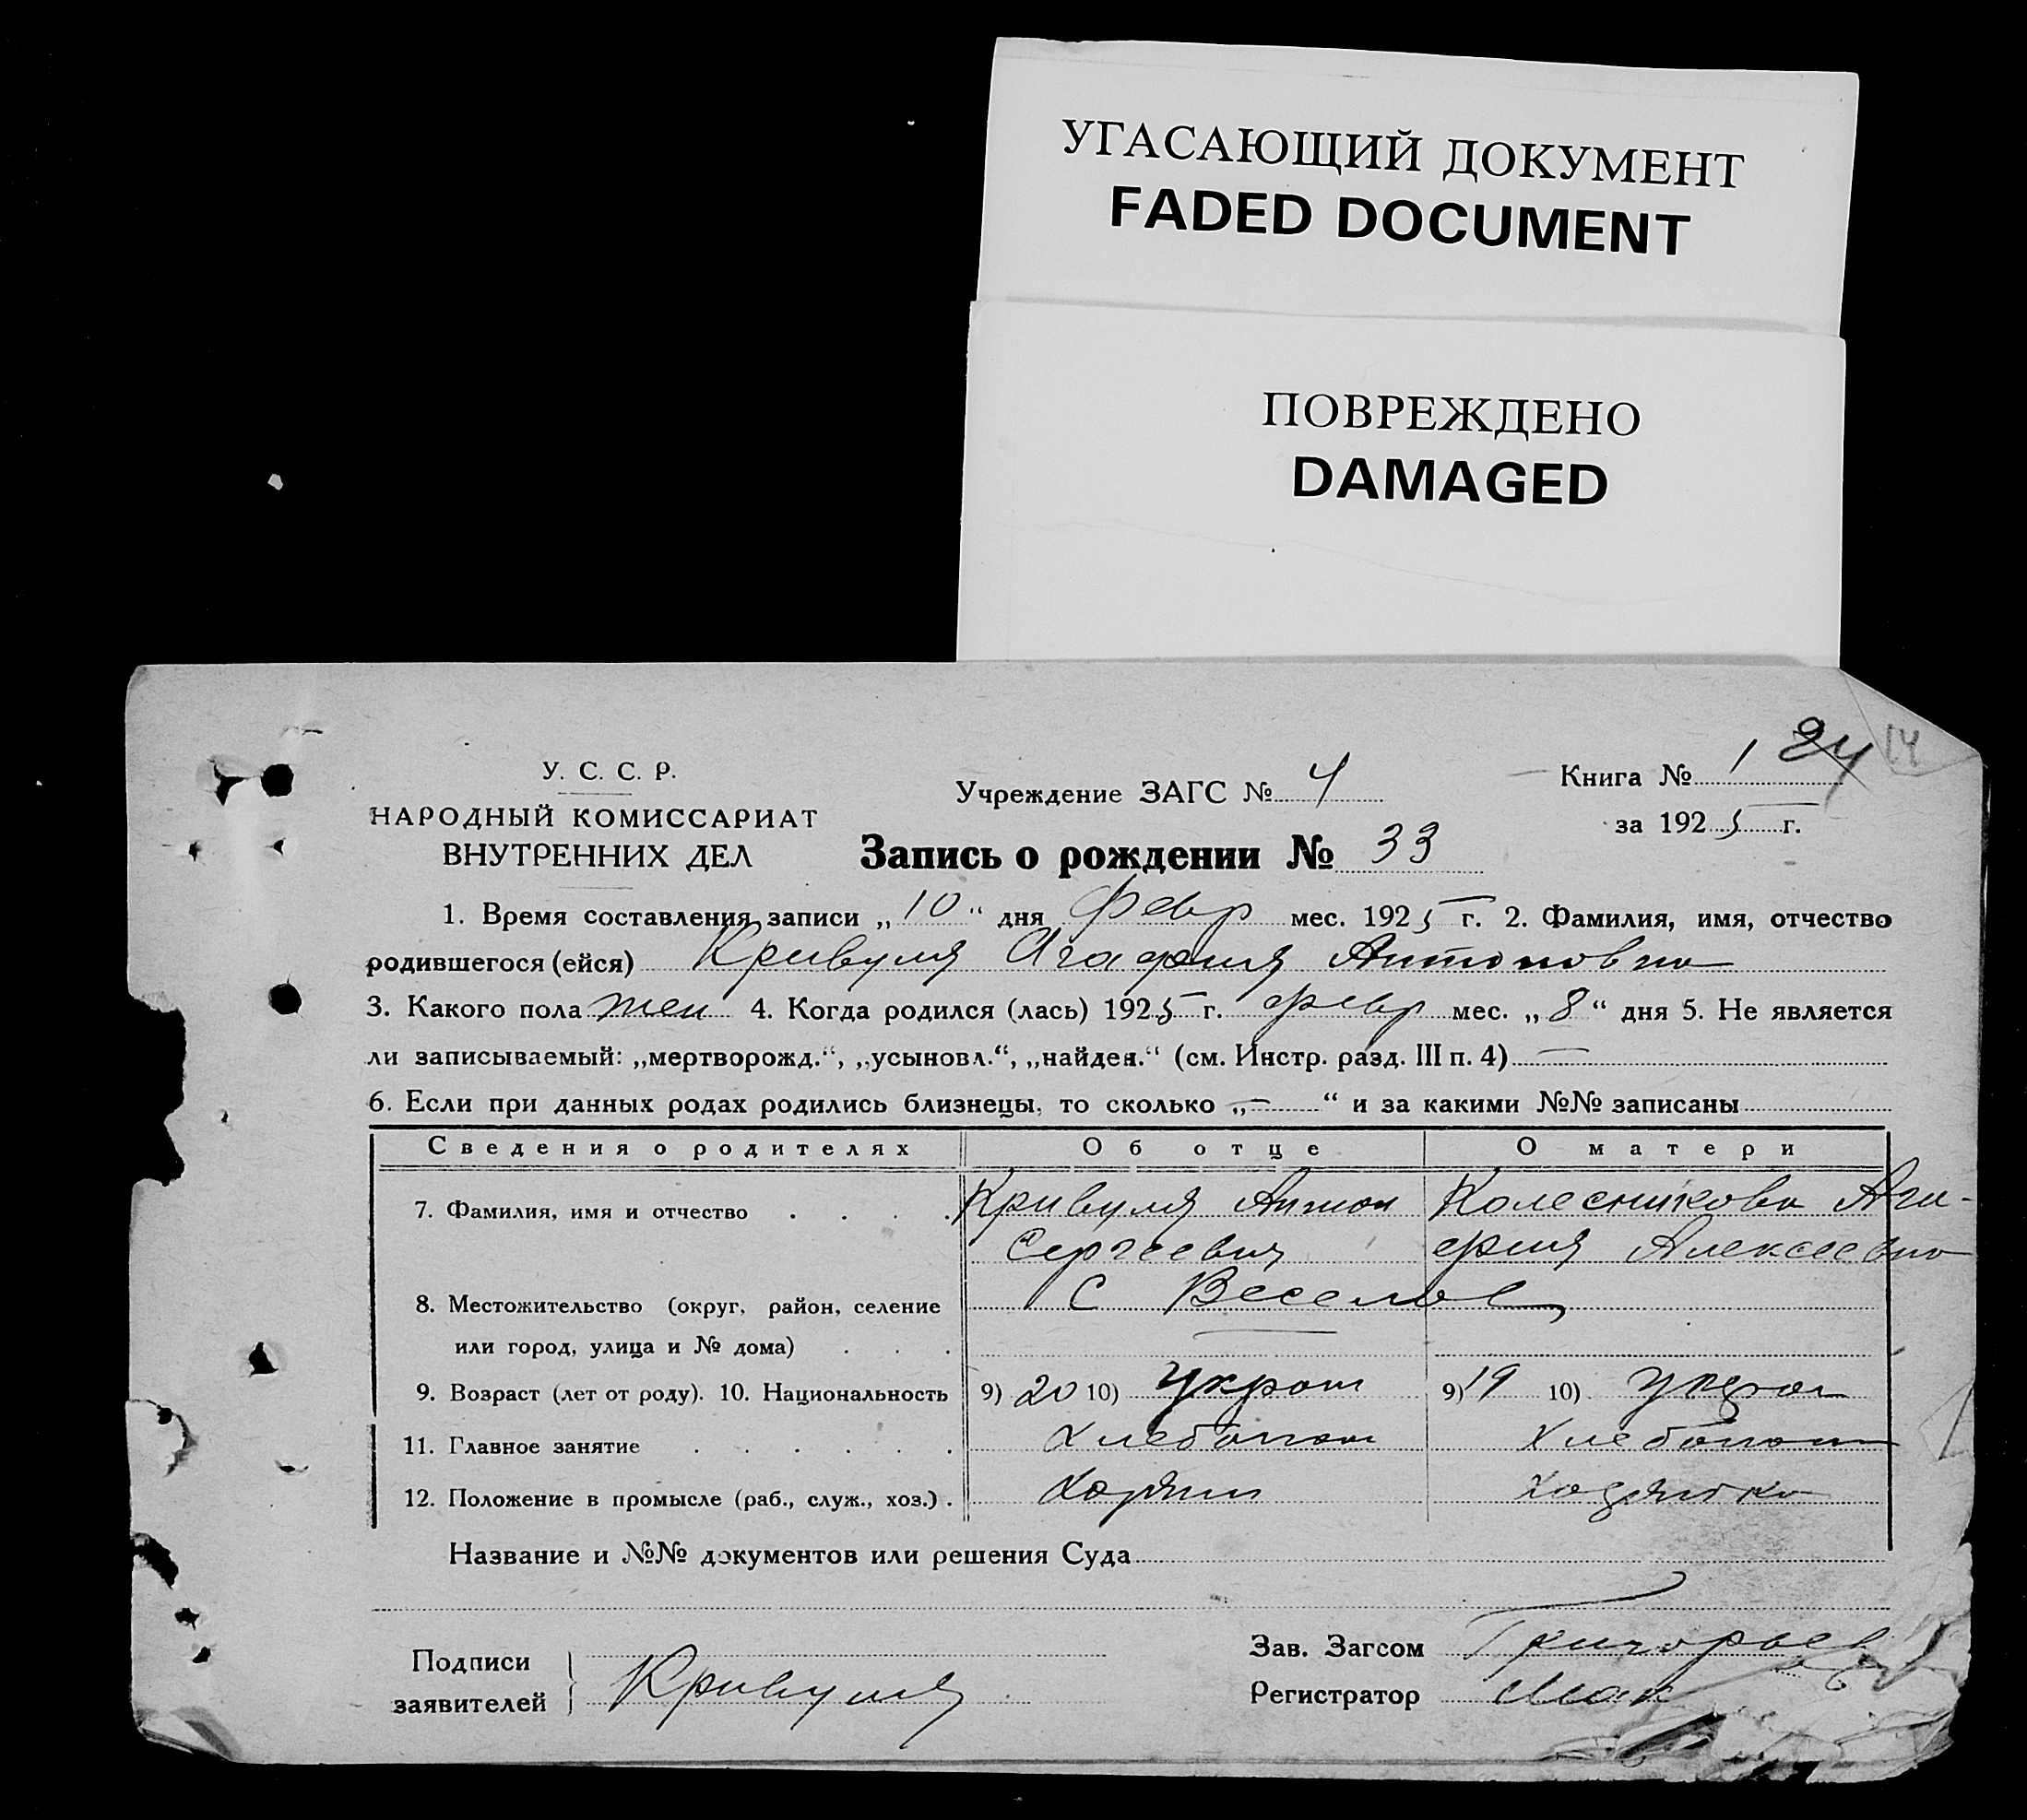 УГАСАЮЩИЙ ДОКУМЕНТ
FADED DOCUMENT
ПОВРЕЖДЕНО
DAMAGED
У. С. С. Р.
НАРОДНЫЙ КОМИССАРИАТ
ВНУТРЕННИХ ДЕЛ
Учреждение ЗАГС № 4
Книга № 1 24 14
за 1925 г.
Запись о рождении № 33
1. Время составления записи „10“ дня февр мес. 1925 г. 2. Фамилия, имя, отчество
родившегося (ейся) Кривуля Агафия Антоновна
3. Какого пола жен 4. Когда родился (лась) 1925 г. февр мес. „8“ дня 5. Не является
ли записываемый: „мертворожд.“, „усыновл.“, „найден.“ (см. Инстр. разд. III п. 4) —
6. Если при данных родах родились близнецы, то сколько „—“ и за какими №№ записаны
Сведения о родителях Об отце О матери
7. Фамилия, имя и отчество . . . . Кривуля Антон Колесникова Ага-
Сергеевич фия Алексеевна
8. Местожительство (округ, район, селение С Веселое
или город, улица и № дома) . . .
9. Возраст (лет от роду). 10. Национальность 9) 20 10) Украин 9) 19 10) Украин
11. Главное занятие . . . . . . Хлебопаш Хлебопаш
12. Положение в промысле (раб., служ., хоз.) . Хозяин Хозяйка
Название и №№ документов или решения Суда
Подписи
заявителей Кривуля
Зав. Загсом Григорьев
Регистратор